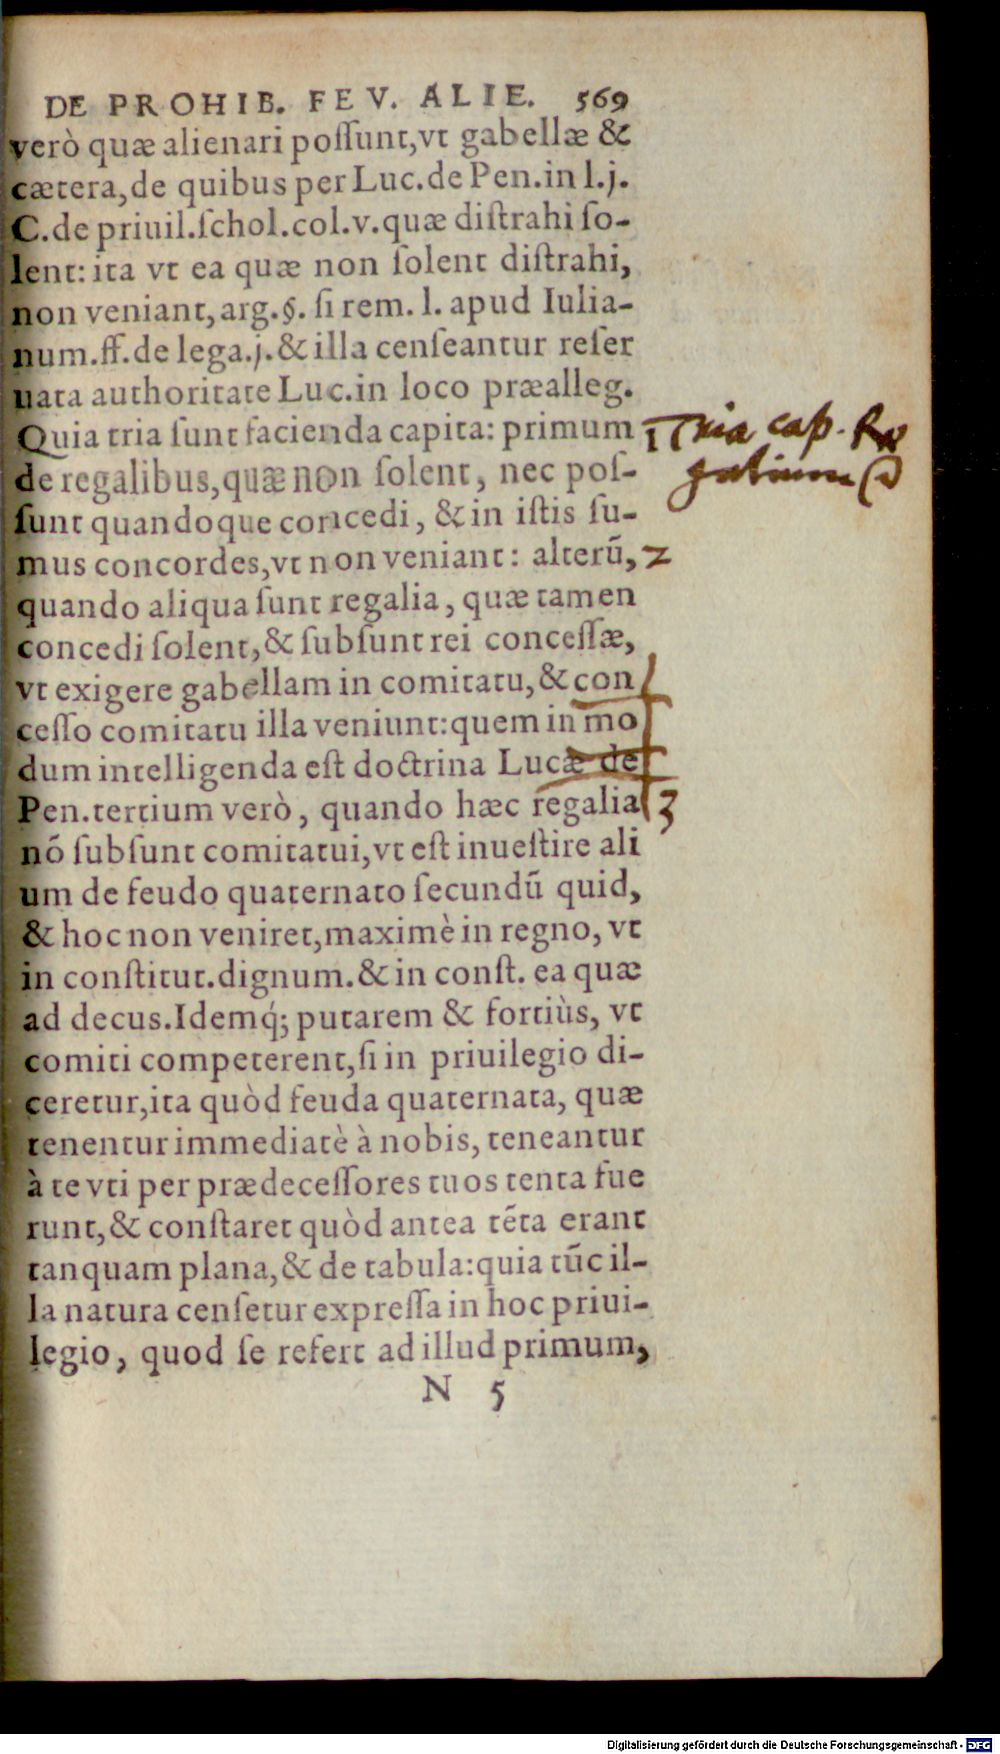 DE PROHIB. FEV. ALIE. 569
verò quæ alienari poſſunt,vt gabellæ &
cætera,de quibus per Luc.de Pen.in l.j.
C.de priuil.ſchol.col.v.quæ diſtrahi ſo-
lent: ita vt ea quæ non ſolent diſtrahi,
non veniant,arg.§. ſi rem. l. apud Iulia-
num.ff.de lega.j.& illa cenſeantur reſer
uata authoritate Luc.in loco præalleg.
Quia tria ſunt facienda capita: primum 1 Tria cap. Re
de regalibus,quæ non ſolent, nec poſ- galium
ſunt quandoque concedi, & in iſtis ſu-
mus concordes,vt non veniant: alterũ, 2
quando aliqua ſunt regalia, quæ tamen
concedi ſolent,& ſubſunt rei conceſſæ,
vt exigere gabellam in comitatu,& con
ceſſo comitatu illa veniunt:quem in mo
dum intelligenda eſt doctrina Lucæ de
Pen.tertium verò, quando hæc regalia 3
nõ ſubſunt comitatui,vt eſt inueſtire ali
um de feudo quaternato ſecundũ quid,
& hoc non veniret,maximè in regno, vt
in conſtitut.dignum.& in conſt. ea quæ
ad decus.Idemq́; putarem & fortiùs, vt
comiti competerent,ſi in priuilegio di-
ceretur,ita quòd feuda quaternata, quæ
tenentur immediatè à nobis, teneantur
à te vti per prædeceſſores tuos tenta fue
runt,& conſtaret quòd antea tẽta erant
tanquam plana,& de tabula:quia tũc il-
la natura cenſetur expreſſa in hoc priui-
legio, quod ſe refert ad illud primum,
N 5
Digitalisierung gefördert durch die Deutsche Forschungsgemeinschaft - DFG